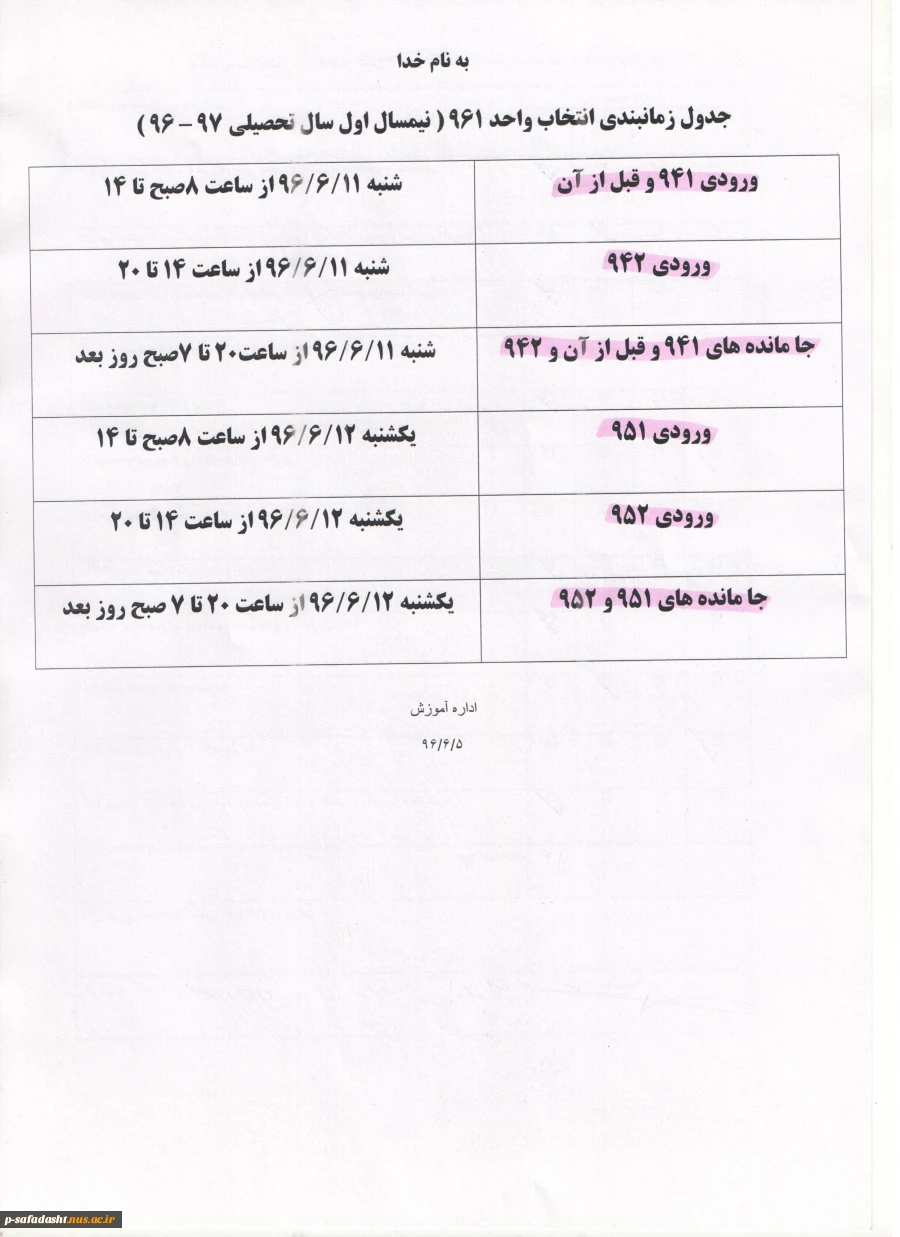 به نام خدا
جدول زمانبندی انتخاب واحد ۹۶۱ ( نیمسال اول سال تحصیلی ۹۷ - ۹۶ )
ورودی ۹۴۱ و قبل از آن
شنبه ۹۶/۶/۱۱ از ساعت ۸صبح تا ۱۴
ورودی ۹۴۲
شنبه ۹۶/۶/۱۱ از ساعت ۱۴ تا ۲۰
جا مانده های ۹۴۱ و قبل از آن و ۹۴۲
شنبه ۹۶/۶/۱۱ از ساعت۲۰ تا ۷صبح روز بعد
ورودی ۹۵۱
یکشنبه ۹۶/۶/۱۲ از ساعت ۸صبح تا ۱۴
ورودی ۹۵۲
یکشنبه ۹۶/۶/۱۲ از ساعت ۱۴ تا ۲۰
جا مانده های ۹۵۱ و ۹۵۲
یکشنبه ۹۶/۶/۱۲ از ساعت ۲۰ تا ۷ صبح روز بعد
اداره آموزش
۹۶/۶/۵
p-safadasht.nus.ac.ir